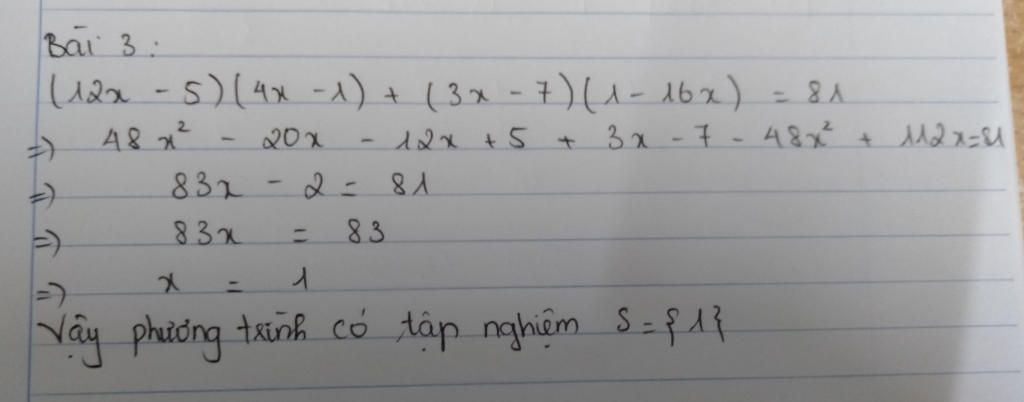 Bài 3:
(12x - 5)(4x - 1) + (3x - 7)(1 - 16x) = 81
=> 48x² - 20x - 12x + 5 + 3x - 7 - 48x² + 112x = 81
=> 83x - 2 = 81
=> 83x = 83
=> x = 1
Vậy phương trình có tập nghiệm S = {1}